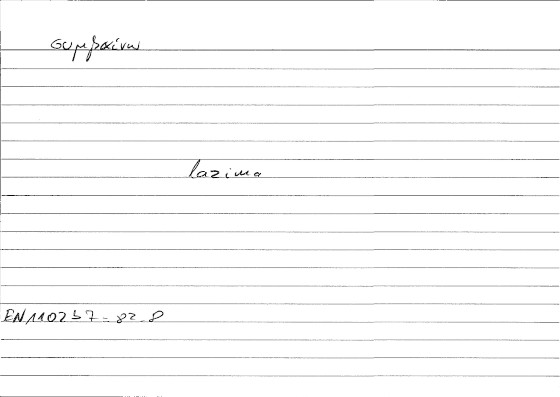 συμβαίνω
lazima
EN110257-82-8